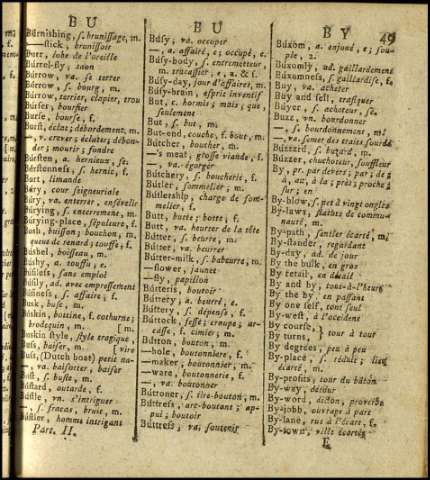 BU
BU
BY
49
Búrnishing, s. brunissage, m.
—stick, brunissoir
Burr, lobe de l'oreille
Búrrel-fly, taon
Búrrow, va. se terrer
Búrrow, s. bourg, m.
Búrrow, terrier, clapier, trou
Búrser, boursier
Burse, bourse, f.
Burst, éclat; débordement, m.
—, v. crever; éclater; débon-
der; mourir; fondre
Búrsten, a. hernieux, se
Búrstenness, s. hernie, f.
Burt, limande
Búry, cour seigneuriale
Búry, va. enterrer, ensévelir
Búrying, s. enterrement, m.
Búrying-place, sépulcre, f.
Bush, buisson; bouchon, m.
queue de renard; touffe, f.
Búshel, boisseau, m.
Búshy, a. touffu, e
Búsiless, sans emploi
Búsily, ad. avec empressement
Búsiness, s. affaire, f.
Busk, busc, m.
Búskin, bottine, f. cothurne;
brodequin, m. [m.
Búskin style, style tragique
Buss, baiser, m. [vire
Buss, (Dutch boat) petit na-
—, va. baisotter, baiser
Bust, s. buste, m.
Bústard, outarde, f.
Bústle, vn. s'intriguer
—, s. fracas, bruit, m.
Bústler, homme intrigant
Part. II.
Búsy, va. occuper
—, a. affairé, e; occupé, e
Búsy-body, s. entremetteur,
m. tracassier, e, a. & s.
Búsy-day, jour d'affaires, m.
Búsy-brain, esprit inventif
But, c. hormis; mais; que,
seulement
But, s. but, m.
But-end, couche, f. bout, m.
Bútcher, boucher, m.
—'s meat, grosse viande, f.
—, va. égorger
Bútchery, s. boucherie, f.
Bútler, sommelier, m.
Bútlership, charge de som-
melier, f.
Butt, butte; botte, f.
Butt, va. heurter de la tête
Bútter, s. beurre, m.
Bútter, va. beurrer
Bútter-milk, s. babeurre, m.
—flower, jaunet
—fly, papillon
Bútteris, boutoir
Búttery, a. beurré, e
Búttery, s. dépense, f.
Búttock, fesse; croupe; ar-
casse, f. cimier, m.
Bútton, bouton, m.
—hole, boutonniere, f.
—maker, boutonnier, m.
—ware, boutonnerie, f.
—, va. boutonner
Búttoner, s. tire-bouton, m.
Búttress, arc-boutant; ap-
pui; boutoir
Búttress, va. soutenir
Búxom, a. enjoué, e; sou-
ple, 2.
Búxomly, ad. gaillardement
Búxomness, s. gaillardise, f.
Buy, va. acheter
Buy and sell, trafiquer
Búyer, s. acheteur, se.
Buzz, vn. bourdonner
—, s. bourdonnement, m.
—, va. semer des traits sourds
Búzzard, s. busard, m.
Búzzer, chuchoteur, souffleur
By, pr. par devers; par; de;
à, au, à la; près; proche;
sur; en
By-blow, s. pet à vingt ongles
By-laws, statuts de commu-
nauté, m.
By-path, sentier écarté, m.
By-stander, regardant
By-day, ad. de jour
By the bulk, en gros
By retail, en détail
By and by, tout-à-l'heure
By the by, en passant
By one self, tout seul
By-west, à l'occident
By course, } tour à tour
By turns,
By degrees, peu à peu
By-place, s. réduit; lieu
écarté, m.
By-profits, tour du bâton
By-way, détour
By-word, dicton, proverbe
By-jobb, ouvrage à part
By-lane, rue à l'écart, f.
By-town, ville écartée
E